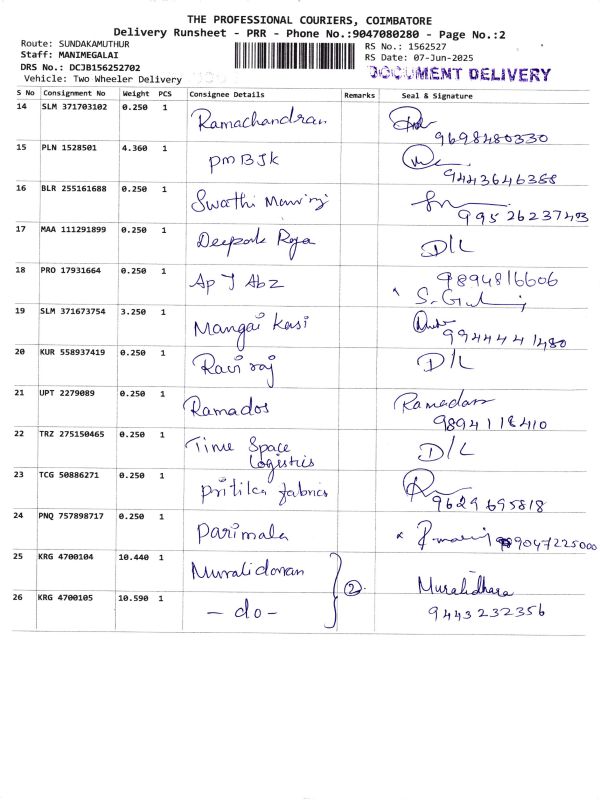 THE PROFESSIONAL COURIERS, COIMBATORE
Delivery Runsheet - PRR - Phone No.:9047080280 - Page No.:2
Route: SUNDAKAMUTHUR
Staff: MANIMEGALAI
DRS No.: DCJB156252702
Vehicle: Two Wheeler Delivery
RS No.: 1562527
RS Date: 07-Jun-2025
DOCUMENT DELIVERY
S No Consignment No Weight PCS Consignee Details Remarks Seal & Signature
14 SLM 371703102 0.250 1 Ramachandran
9698480330
15 PLN 1528501 4.360 1 PMBJK
9443646358
16 BLR 255161688 0.250 1 Swathi
9952623743
17 MAA 111291899 0.250 1 Deepak Roja D/L
18 PRO 17931664 0.250 1 Ap J Abz 9894816606
19 SLM 371673754 3.250 1 Mangai Kasi
9944441480
20 KUR 558937419 0.250 1 Ravi raj D/L
21 UPT 2279089 0.250 1 Ramados Ramadass
9894118410
22 TRZ 275150465 0.250 1 Time Space D/L
Logistics
23 TCG 50886271 0.250 1 Pritika fabrics
9629695818
24 PNQ 757898717 0.250 1 Parimala 9047225000
25 KRG 4700104 10.440 1 Muralidoran
② Muralidhara
26 KRG 4700105 10.590 1 - do - 9443232356